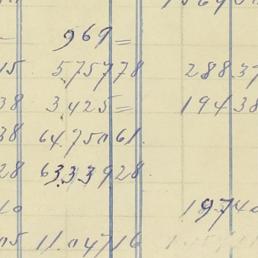 969 =
15 5,757 78 288.37
38 3,425 = 194 38
38 64.750 61.
28 63339 28
10 1974
05 11.047 16